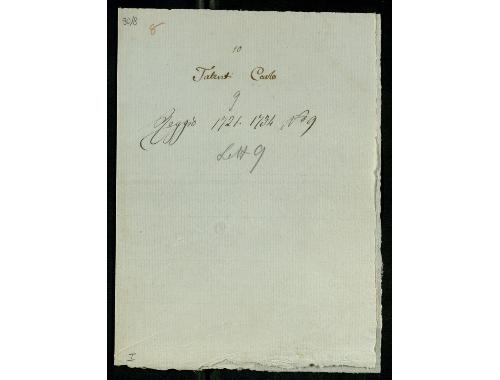 30/8
8
10
Talenti Carlo
9
Reggio 1721-1734 N.° 9
Lett 9
I